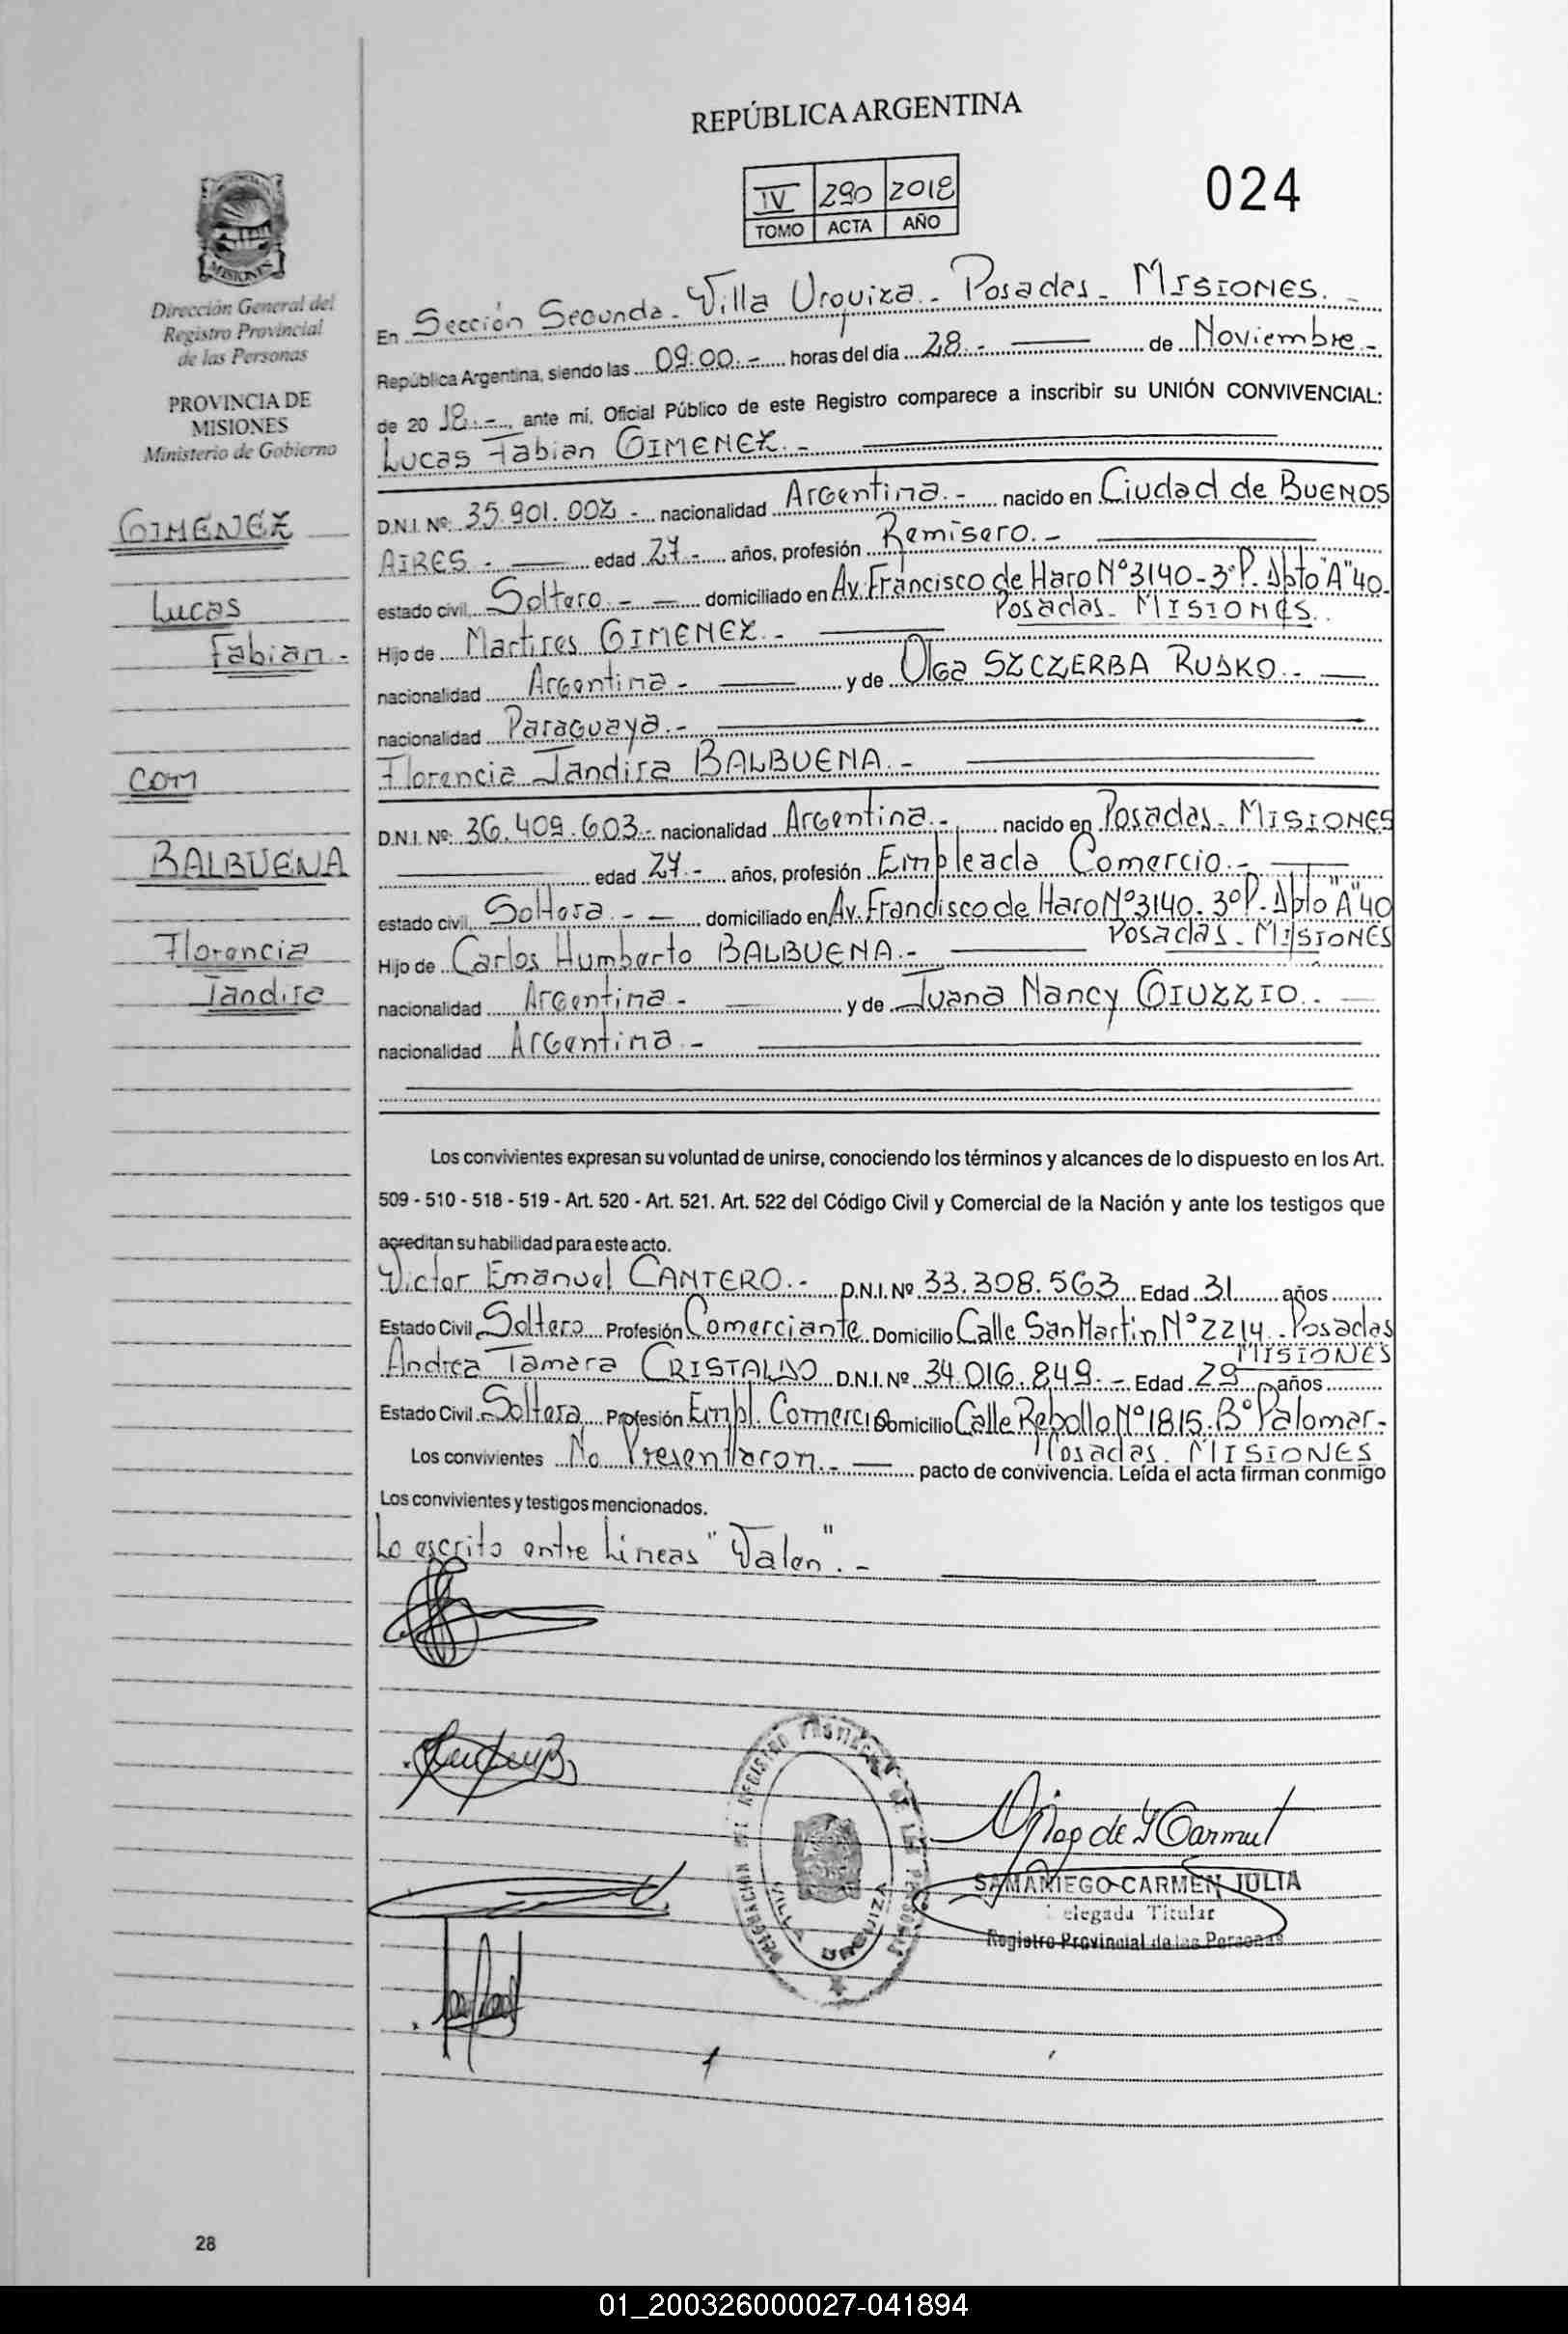 REPÚBLICA ARGENTINA
IV 290 2018
TOMO ACTA AÑO
024
MISIONES
Dirección General del
Registro Provincial
de las Personas
PROVINCIA DE
MISIONES
Ministerio de Gobierno
GIMENEZ
Lucas
Fabian.-
con
BALBUENA
Florencia
Jandira
En Sección Segunda - Villa Urquiza.- Posadas - MISIONES.-
República Argentina, siendo las 09:00.- horas del día 28.- de Noviembre.-
de 2018.-, ante mí, Oficial Público de este Registro comparece a inscribir su UNIÓN CONVIVENCIAL:
Lucas Fabian GIMENEZ.-
D.N.I. Nº: 35.901.002 - nacionalidad Argentina.- nacido en Ciudad de BUENOS
AIRES.- edad 27.- años, profesión Remisero.-
estado civil Soltero.- domiciliado en Av. Francisco de Haro Nº3140-3ºP. Dpto "A" 40
Posadas - MISIONES.
Hijo de Martires GIMENEZ.-
nacionalidad Argentina.- y de Olga SZCZERBA RUDKO.-
nacionalidad Paraguaya.-
Florencia Jandira BALBUENA.-
D.N.I. Nº: 36.409.603.- nacionalidad Argentina.- nacido en Posadas - MISIONES
edad 27.- años, profesión Empleada Comercio.-
estado civil Soltera.- domiciliado en Av. Francisco de Haro Nº3140. 3ºP. Dpto "A" 40
Posadas - MISIONES
Hijo de Carlos Humberto BALBUENA.-
nacionalidad Argentina.- y de Juana Nancy GIUZZIO.-
nacionalidad Argentina.-
Los convivientes expresan su voluntad de unirse, conociendo los términos y alcances de lo dispuesto en los Art.
509 - 510 - 518 - 519 - Art. 520 - Art. 521. Art. 522 del Código Civil y Comercial de la Nación y ante los testigos que
acreditan su habilidad para este acto.
Victor Emanuel CANTERO.- D.N.I. Nº 33.308.563 Edad 31 años
Estado Civil Soltero Profesión Comerciante Domicilio Calle San Martin Nº2214. Posadas
MISIONES
Andrea Tamara CRISTALDO D.N.I. Nº 34.016.849.- Edad 29 años
Estado Civil Soltera Profesión Empl. Comercio Domicilio Calle Rebollo Nº1815. Bº Palomar-
Posadas. MISIONES
Los convivientes No Presentaron.- pacto de convivencia. Leída el acta firman conmigo
Los convivientes y testigos mencionados.
Lo escrito entre Lineas "Valen".-
DELEGACION DEL REGISTRO PROVINCIAL DE LAS PERSONAS
VILLA URQUIZA
SAMANIEGO CARMEN JULIA
Delegada Titular
Registro Provincial de las Personas
28
01_200326000027-041894